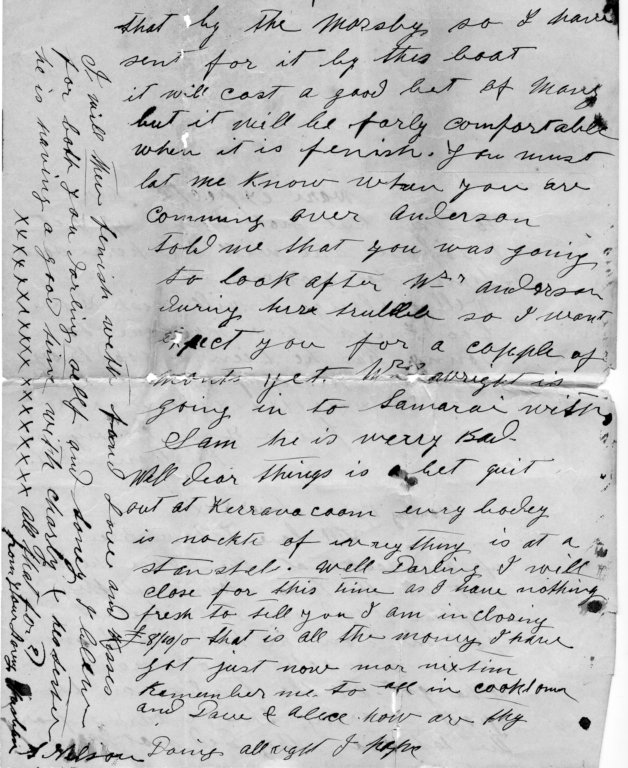 that by the Morsby so I have
sent for it by this boat
it will cost a good bet of many
but it will be farly comfortable
when it is fenish. You must
let me know when you are
comming over anderson
told me that you was going
to look after Mrs anderson
during here trubble so I want
expect you for a copple of
monts yet. Mrs is
going in to Samarai with
Sam he is werry Bad.
Well dear things is a bet quit
out at Kerravacoom evry bodey
is nockte of everything is at a
stanstel. Well Darling I will
close for this time as I have nothing
fresh to tell you I am inclosing
£8/10/0 that is all the money I have
got just now mor nixtim
Remember me to all in cooktown
and Dave & Alice how are thy
Doing allright I hope
I will then fenish with fond Love and Kisses
for both you darling self and Soney I
he is having a good time with charly &
xxxxxxxxxxx xxxxxxxx all that for
from your loving
Nelson